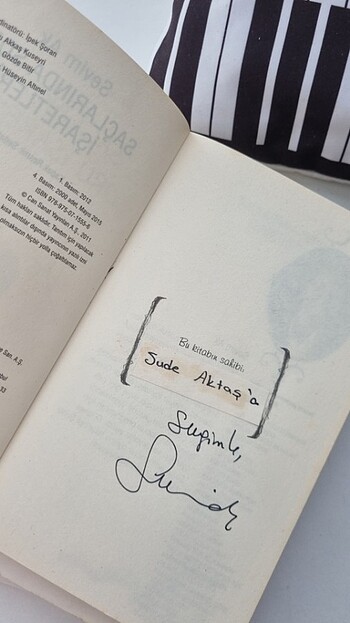 dinatörü: İpek Şoran
Akkaş Kuseyri
Gözde Bitir
Hüseyin Altınel
1. Basım: 2012
4. Basım: 2000 adet, Mayıs 2015
ISBN 978-975-07-1555-6
© Can Sanat Yayınları A.Ş., 2011
Tüm hakları saklıdır. Tanıtım için yapılacak
kısa alıntılar dışında yayıncının yazılı izni
olmaksızın hiçbir yolla çoğaltılamaz.
San. A.Ş.
33
Bu kitabın sahibi:
Sude Aktaş'a
Sevgimle,